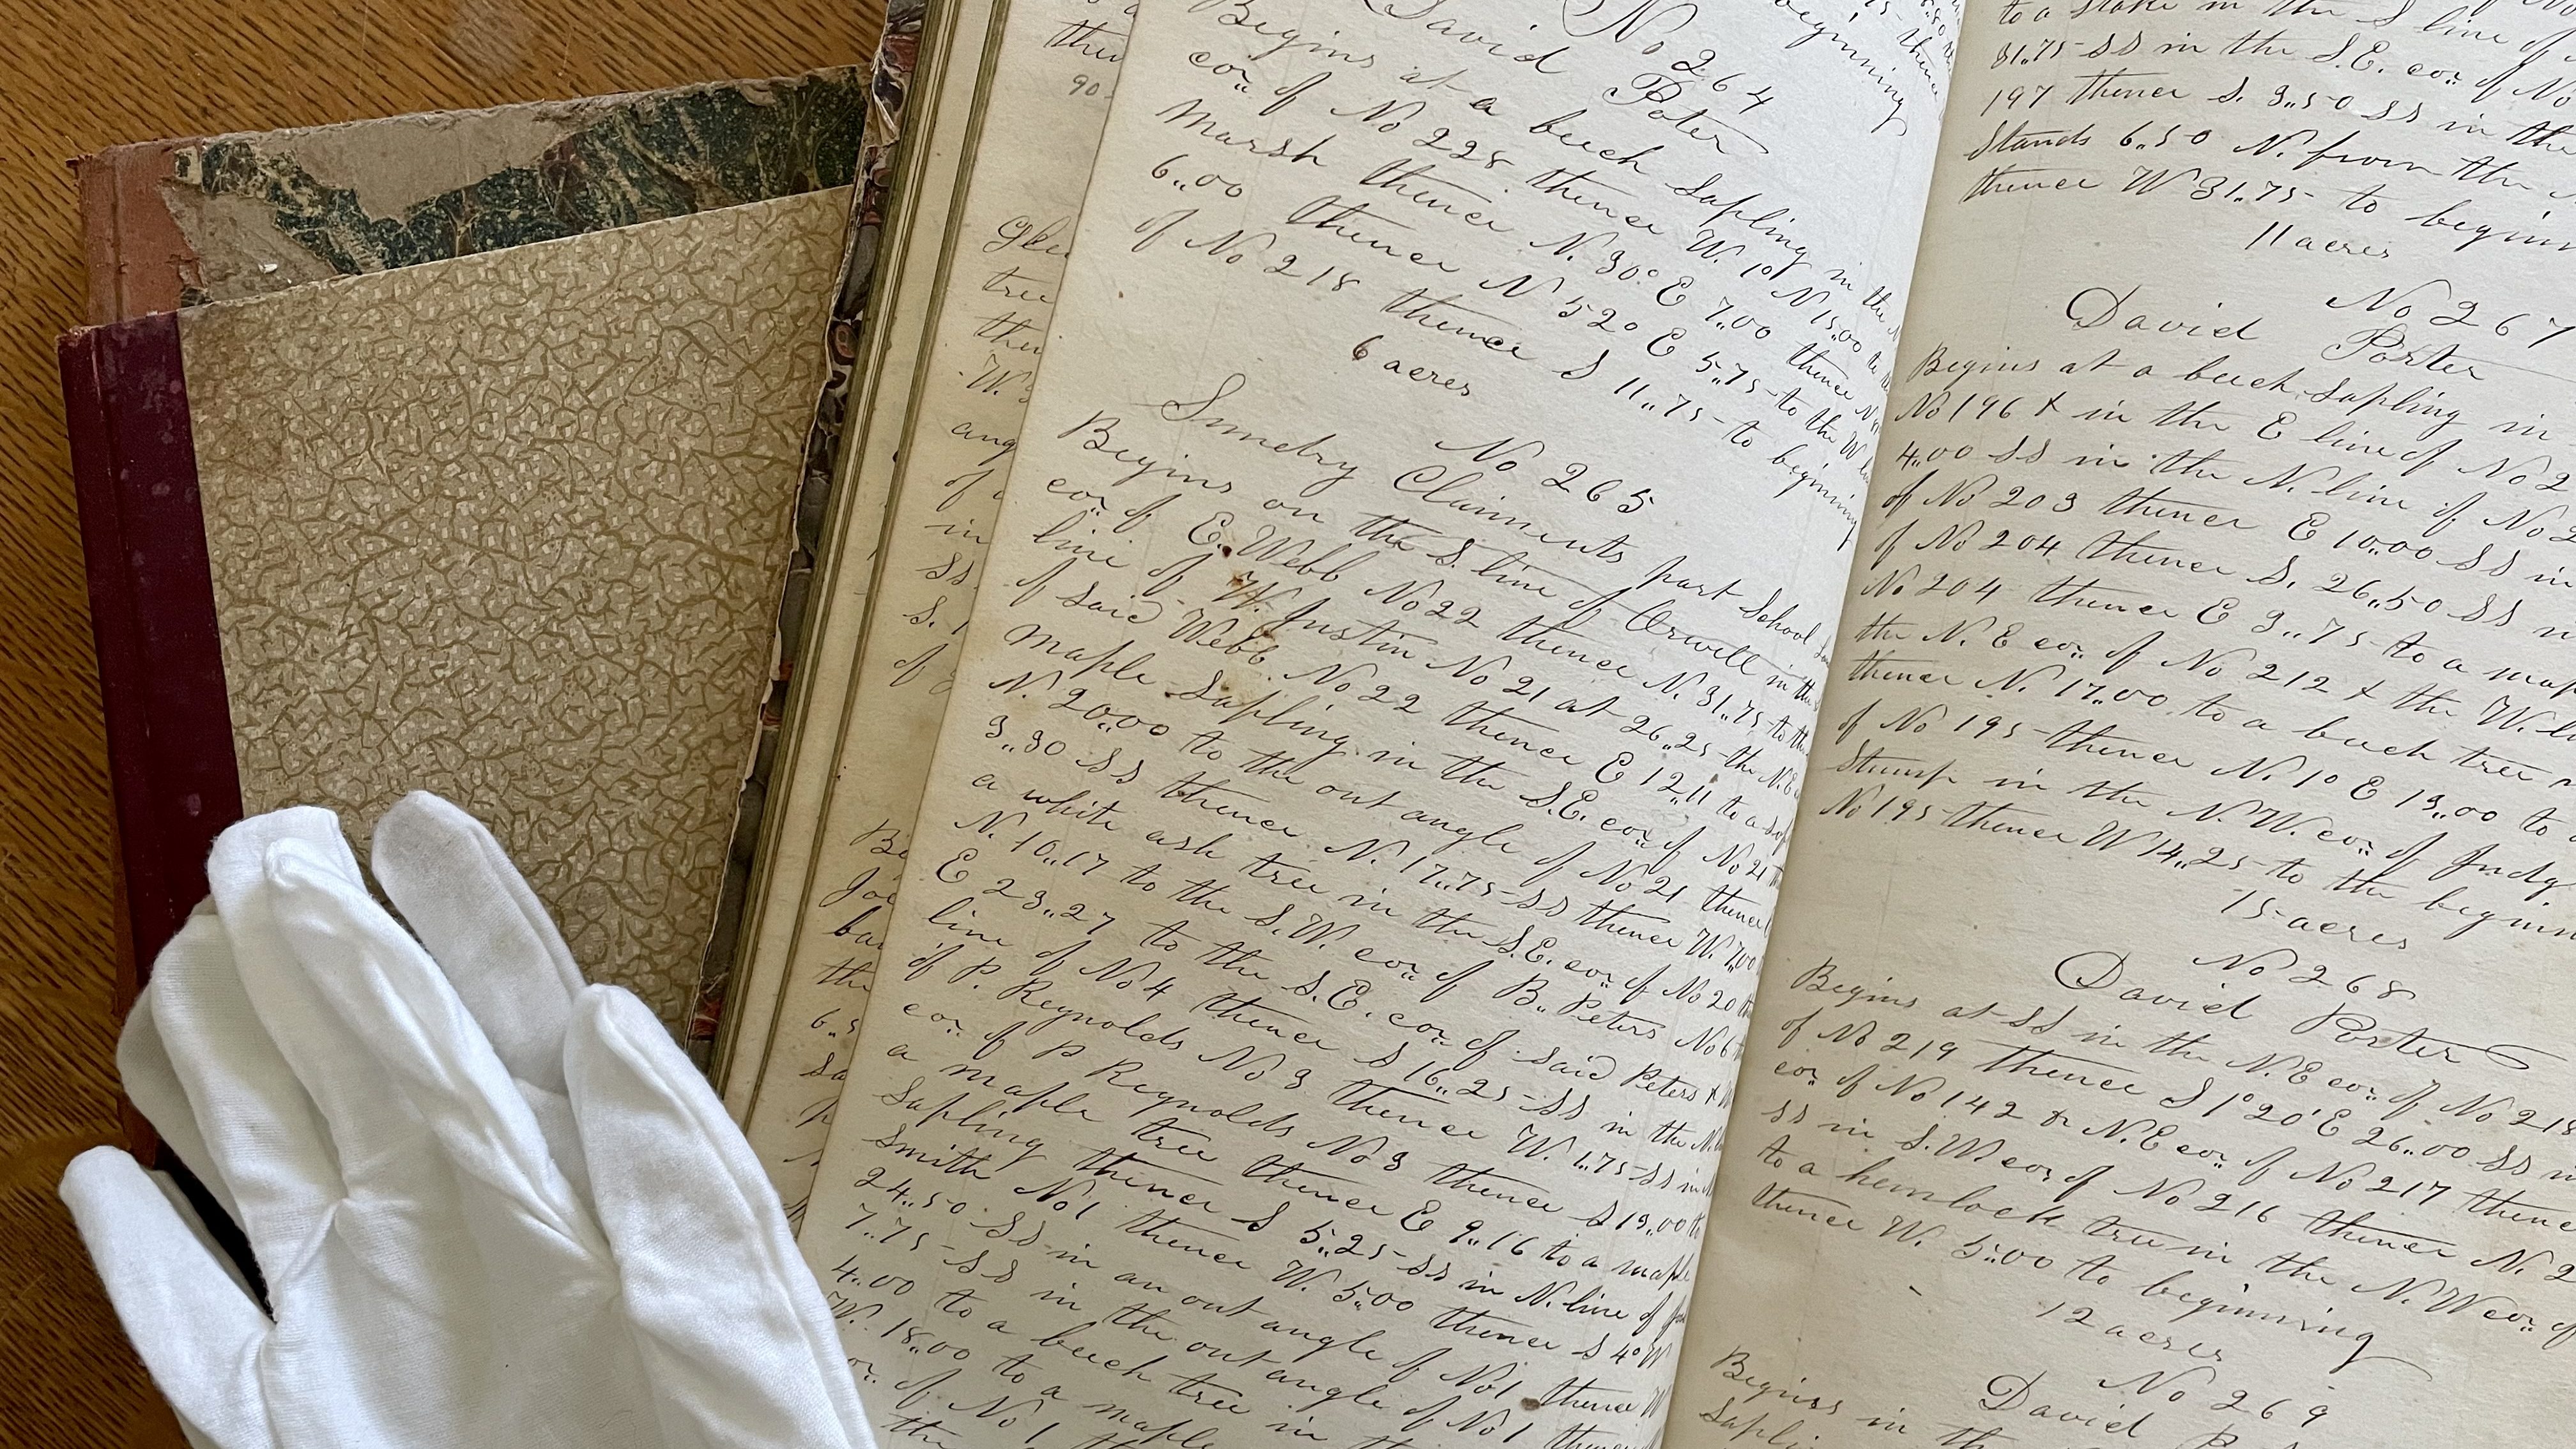 thence
90
Gle
tree
then
W.
ang
of
in
SS
S.
of
Be
Joe
bar
the
6..5
Sa
beginning
No 264
David Poter
Begins at a beech Sapling in the
cor. of No 228 thence W. 10 N 15.00 to the
Marsh thence N. 30° E 7.00 thence N
6..00 thence N 52° E 5..75 to the W
of No 218 thence S 11..75 to beginning
6 acres
No 265
Sundry Claiments part School
Begins on the S. line of Orwell in the
cor. of E. Webb No 22 thence N. 31..75 to the
line of W. Justin No 21 at 26..25 the N.E
of said Webb No 22 thence E 12..11 to a
Maple Sapling in the S.E. cor. of No 21
N. 20..00 to the out angle of No 21 thence
3..30 SS thence N. 17..75 SS thence W. 7.00
a white ash tree in the S.E. cor. of No 20
N. 10..17 to the S.W. cor. of B. Peters No 6
E 23..27 to the S.E. cor. of said Peters &
line of No 4 thence S 16..25 SS in the N.
of P. Reynolds No 3 thence W. 1..75 SS in
cor. of P Reynolds No 3 thence S 19..00 to
a maple tree thence E 9..16 to a maple
Sapling thence S 5..25 SS in N. line of
Smith No 1 thence W. 5..00 thence S 4° W
24..50 SS in an out angle of No 1 thence W
7..75 SS in the out angle of No 1
4..00 to a beech tree in
W. 18.00 to a maple
cor. of No 1
the
to a Stake in the S line of
81..75 SS in the S.E. cor of No
197 thence S. 3..50 SS in the
Stands 6..50 N. from the
thence W 31..75 to beginn
11 acres
No 267
David Porter
Begins at a beech Sapling in
No 196 & in the E line of No 2
4..00 SS in the N. line of No 2
of No 203 thence E 10..00 SS in
of No 204 thence S. 26..50 SS
No 204 thence E 3..75 to a map
the N. E cor. of No 212 & the W. li
thence N. 17.00 to a beech tree
of No 195 thence N. 1° E 19..00 to
Stump in the N.W. cor. of Judg
No 195 thence W 14..25 to the beginn
15 acres
No 268
David Porter
Begins at SS in the N.E cor. of No 218
of No 219 thence S 1° 20' E 26..00 SS
cor. of No 142 & N.E cor. of No 217 thence
SS in S.W cor of No 216 thence N. 2
to a hemlock tree in the N.W cor. of
thence W. 5..00 to beginning
12 acres
No 269
David
Begins in the
Sapli